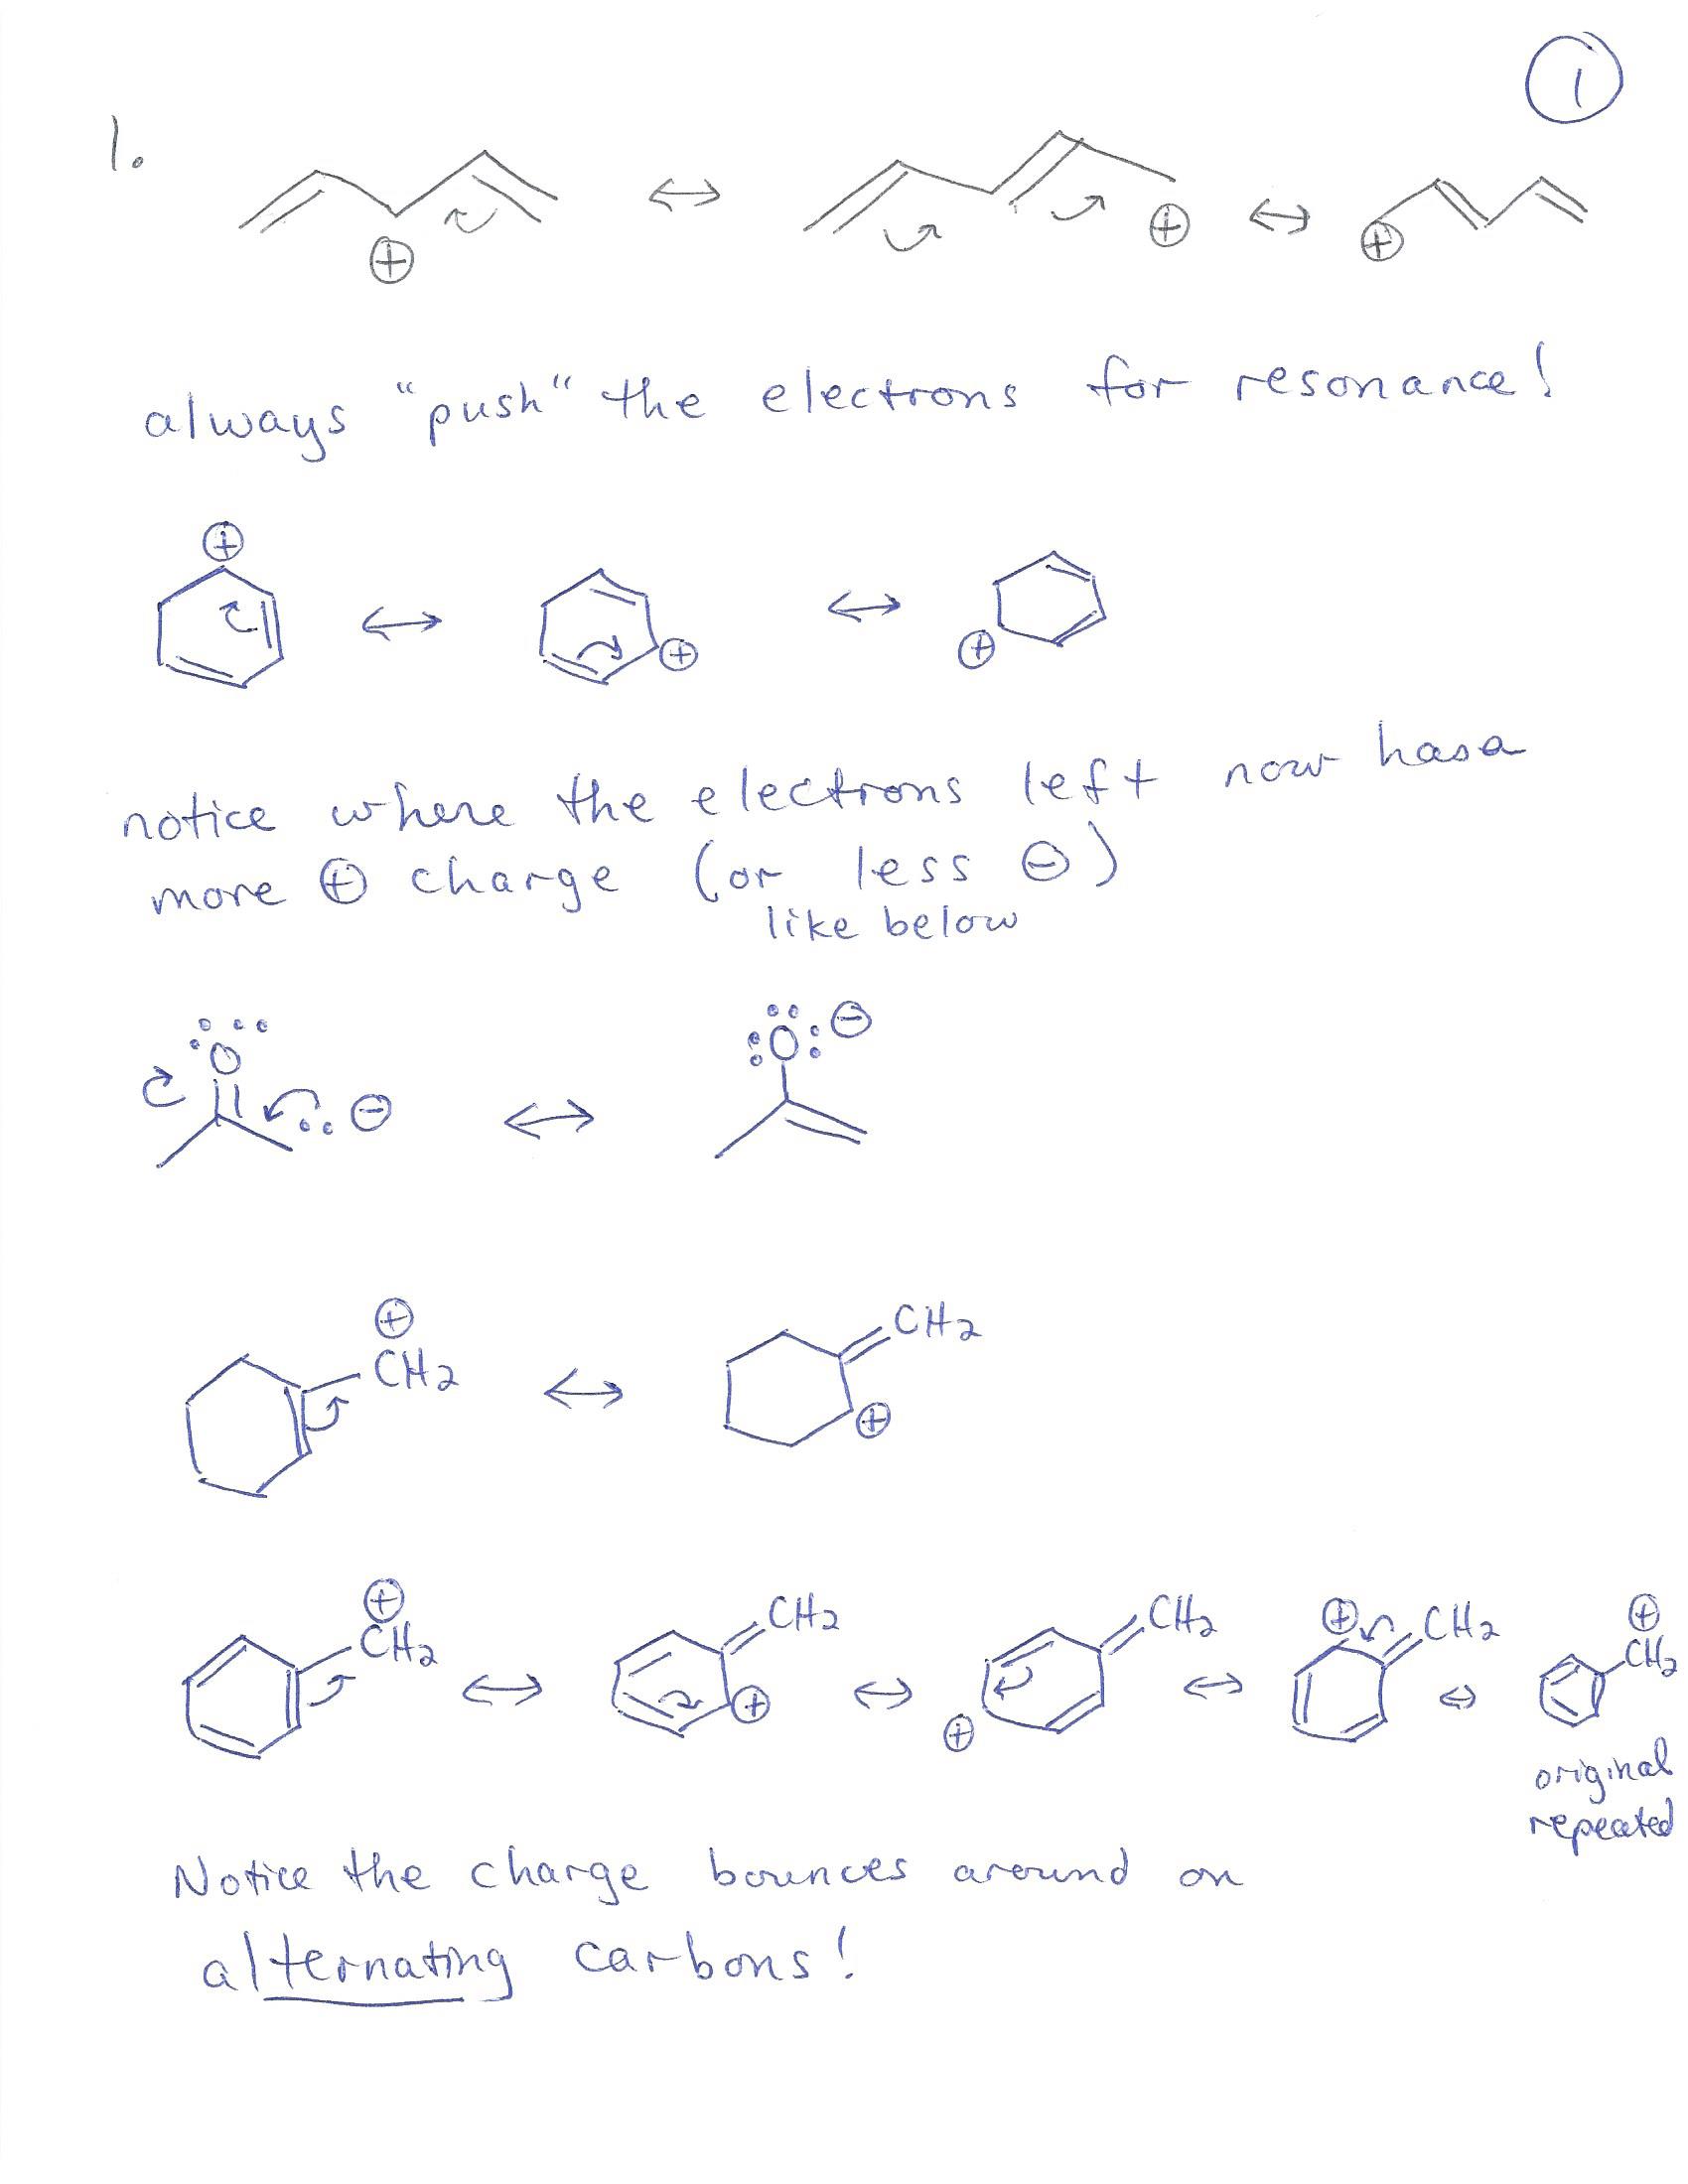 1
1.
⊕ ↔ ⊕ ↔ ⊕
always "push" the electrons for resonance!
⊕ ↔ ⊕ ↔ ⊕
notice where the electrons left now has a
more ⊕ charge (or less ⊖)
like below
O ⊖ ↔ O ⊖
⊕
CH2 ↔ CH2
⊕
⊕ ⊕ ⊕
CH2 ↔ CH2 ↔ CH2 ↔ CH2 ↔ CH2
⊕ ⊕
original
repeated
Notice the charge bounces around on
alternating carbons!